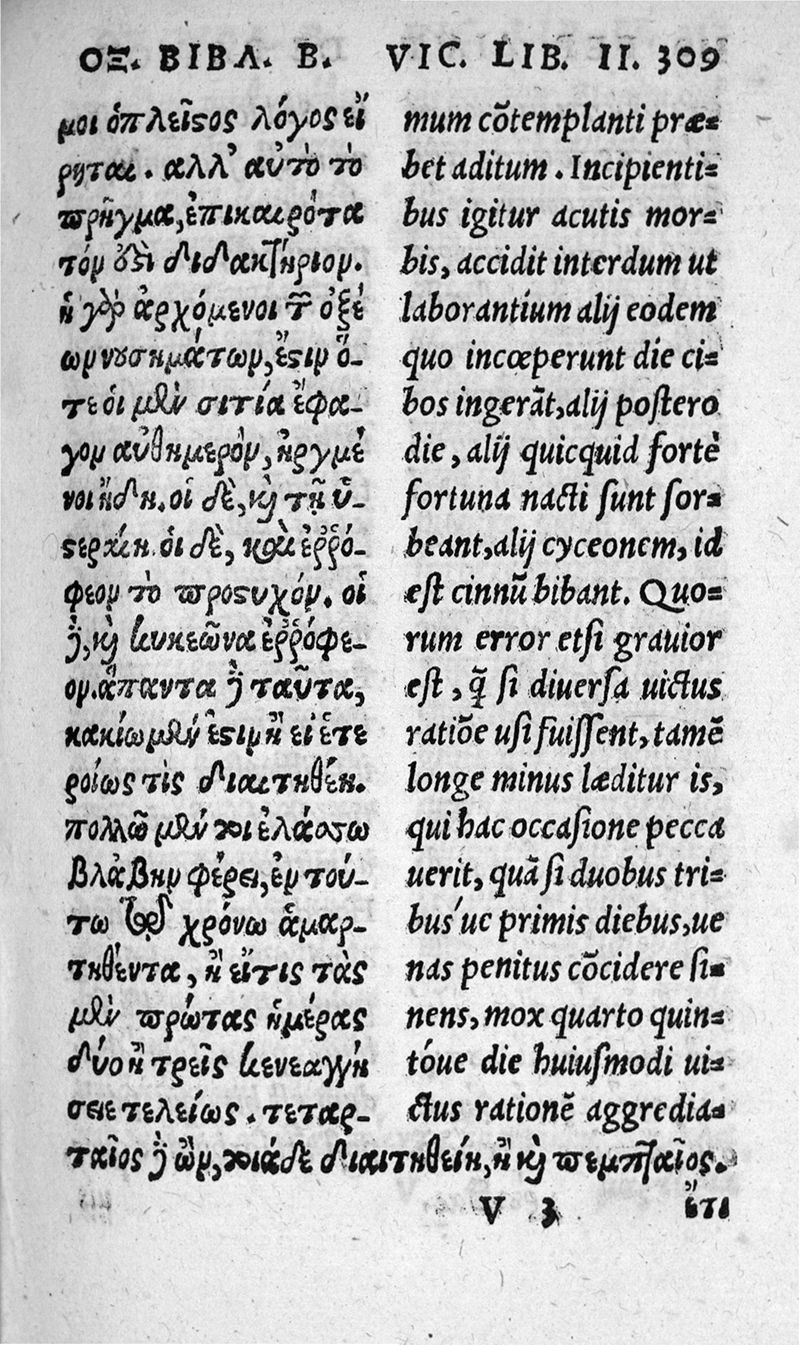 ΟΞ. ΒΙΒΛ. Β. VIC. LIB. II. 309
μοι ὁ πλεῖϛος λόγος εἴ
ρηται . αλλ' αὐτὸ τὸ
πρῆγμα, ἐπικαιρότα
τόν ἐϛι διδακτήριον.
ἢ γὰρ ἀρχόμενοι τῶν ὀξέ
ων νουσημάτων, ἔϛιν ὅ-
τε οἱ μὲν σιτία ἔφα-
γον αὐθημερόν, ἠργμέ
νοι ἤδη. οἱ δὲ, καὶ τῇ ὑ-
ϛεραίη. οἱ δὲ, καὶ ἐῤῥό-
φεον τὸ προϛυχόν. οἱ
δὲ, καὶ κυκεῶνα ἐῤῥόφε-
ον. ἅπαντα δὲ ταῦτα,
κακίω μὲν ἐϛιν ἢ εἰ ἑτε
ροίως τὶς διαιτηθείη.
πολλῶ μὲν τοι ἐλάσσω
βλάβην φέρει, ἐν τού-
τω τῷ χρόνω ἁμαρ-
τηθέντα, ἢ εἴ τις τὰς
μὲν πρώτας ἡμέρας
δύο ἢ τρεῖς κενεαγγή
σειε τελείως . τεταρ-
mum cōtemplanti præ-
bet aditum . Incipienti-
bus igitur acutis mor-
bis, accidit interdum ut
laborantium alij eodem
quo incœperunt die ci-
bos ingerāt, alij poſtero
die, alij quicquid fortè
fortuna nacti ſunt ſor-
beant, alij cyceonem, id
eſt cinnū bibant. Quo-
rum error etſi grauior
eſt, q̄ ſi diuerſa uictus
ratiōe uſi fuiſſent, tamē
longe minus læditur is,
qui hac occaſione pecca
uerit, quā ſi duobus tri-
bus'uc primis diebus, ue
nas penitus cōcidere ſi-
nens, mox quarto quin-
tóue die huiuſmodi ui-
ctus rationē aggredia-
ταῖος δὲ ὢν, τοιάδε διαιτηθείη, ἢ καὶ πεμπταῖος.
V 3 ἔτι